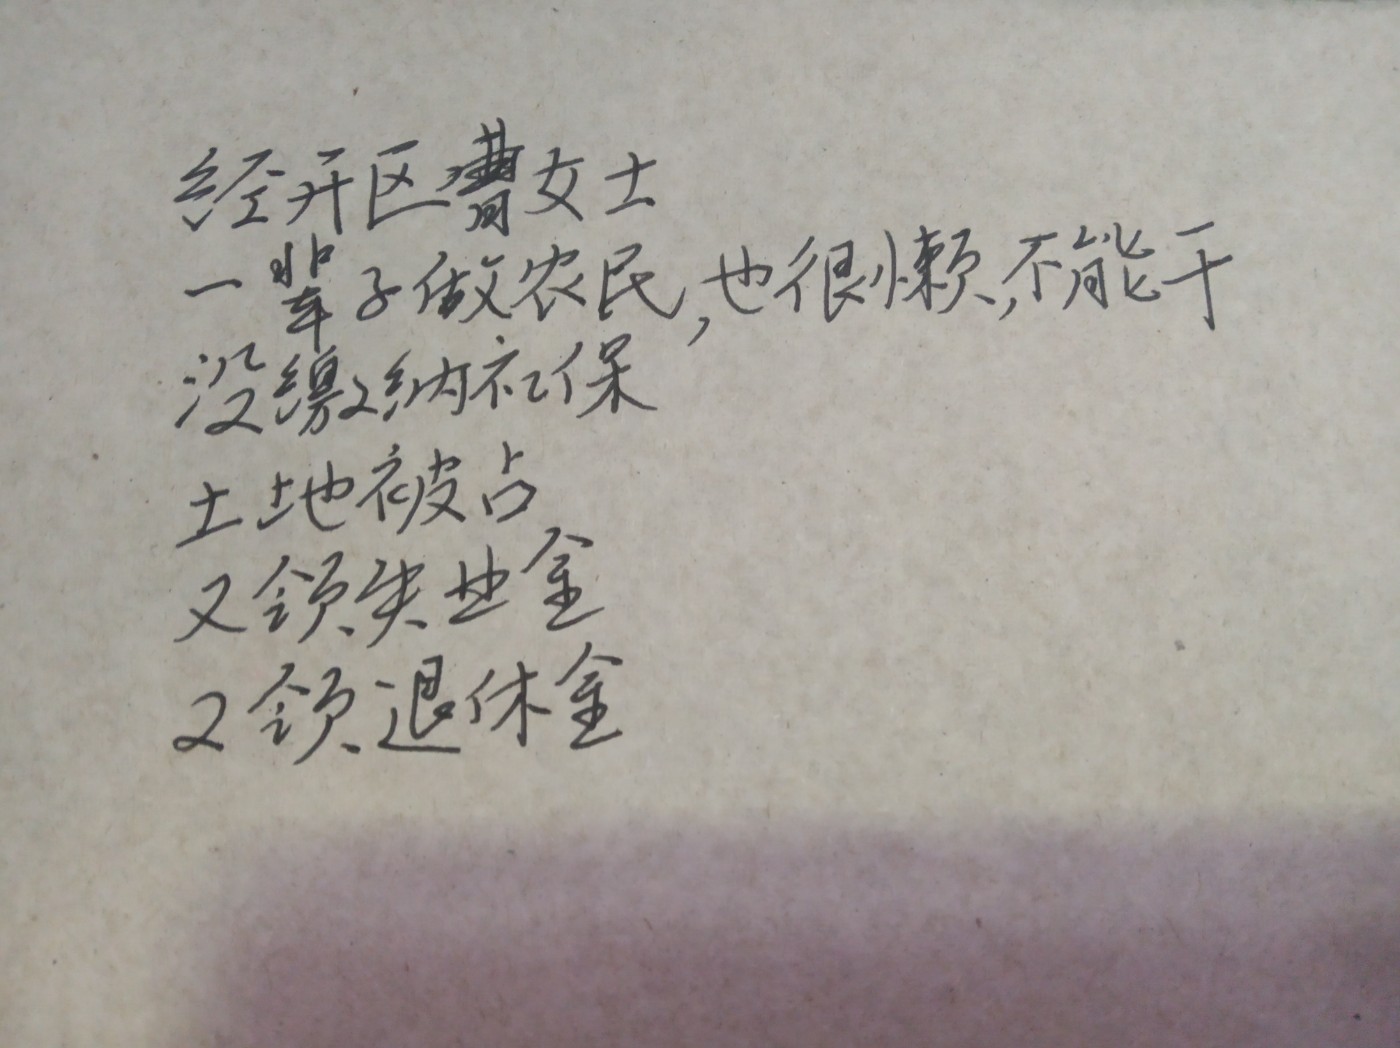 经开区曹女士
一辈子做农民,也很懒,不能干
没缴纳社保
土地被占
又领失业金
又领退休金